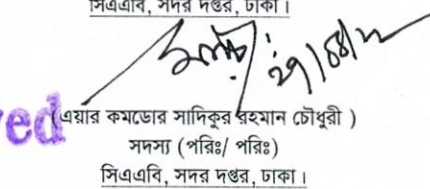 সিএএবি, সদর দপ্তর, ঢাকা।
ved
(এয়ার কমডোর সাদিকুর রহমান চৌধুরী )
সদস্য (পরিঃ/ পরিঃ)
সিএএবি, সদর দপ্তর, ঢাকা।